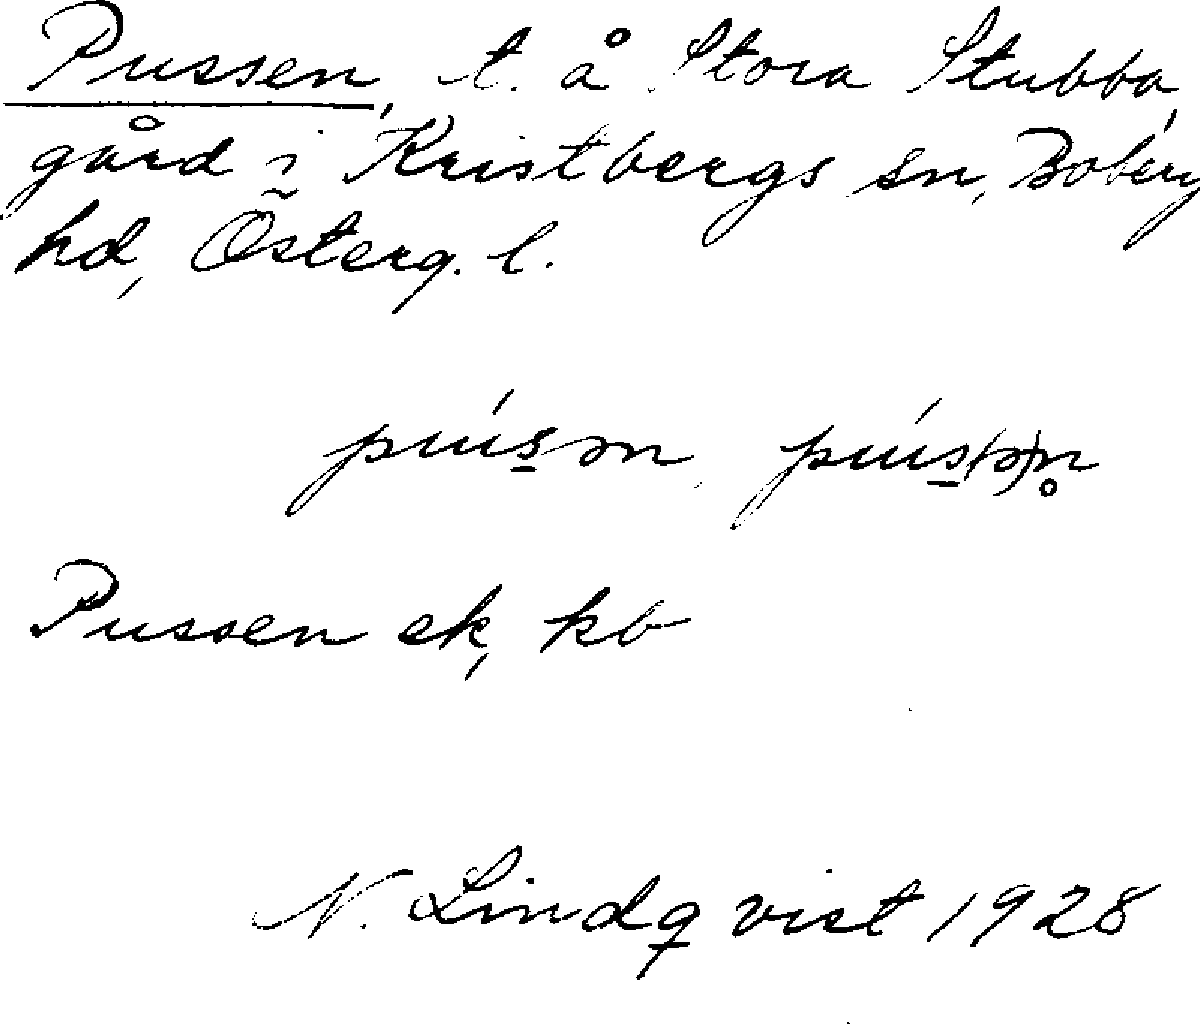 Pussen, t. å Stora Stubba,
gård i Kristbergs sn, Boberg
hd, Österg. l.
pùsən, pùs(ə)n̥
Pussen ek, kb
N. Lindqvist 1928